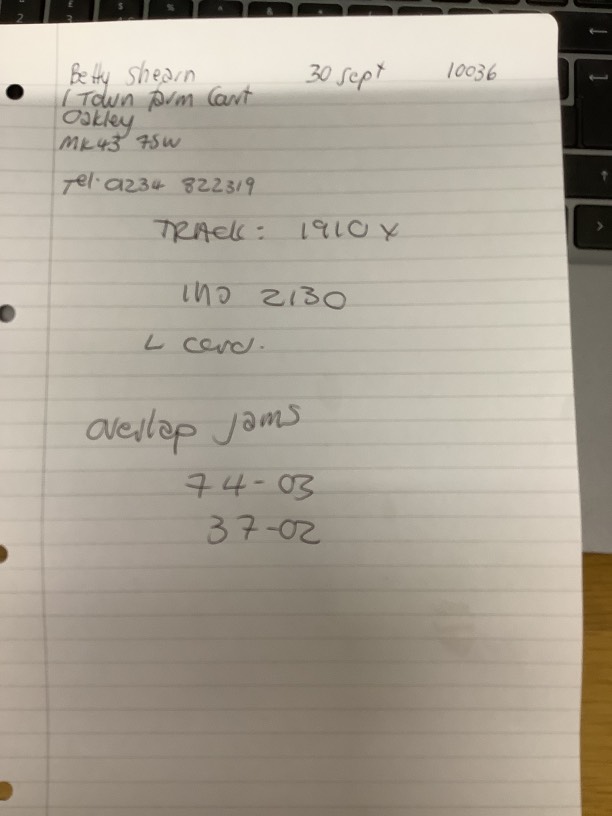 Betty Shearn 30 Sept 10036
1 Town Farm Court
Oakley
MK43 7SW
Tel: 01234 822319
TRACK: 1910 X
IND 2130
L Card.
Overlap Jams
74-03
37-02